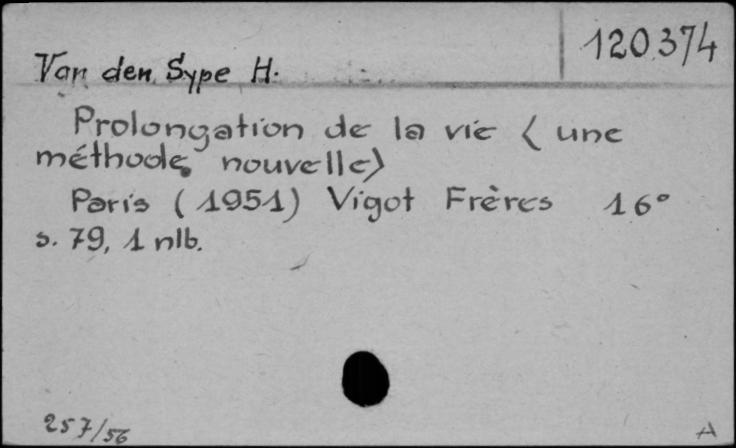 120.374
Van den Sype H.
Prolongation de la vie (une
méthode nouvelle)
Paris (1951) Vigot Frères 16°
s. 79, 1 nlb.
257/56
A